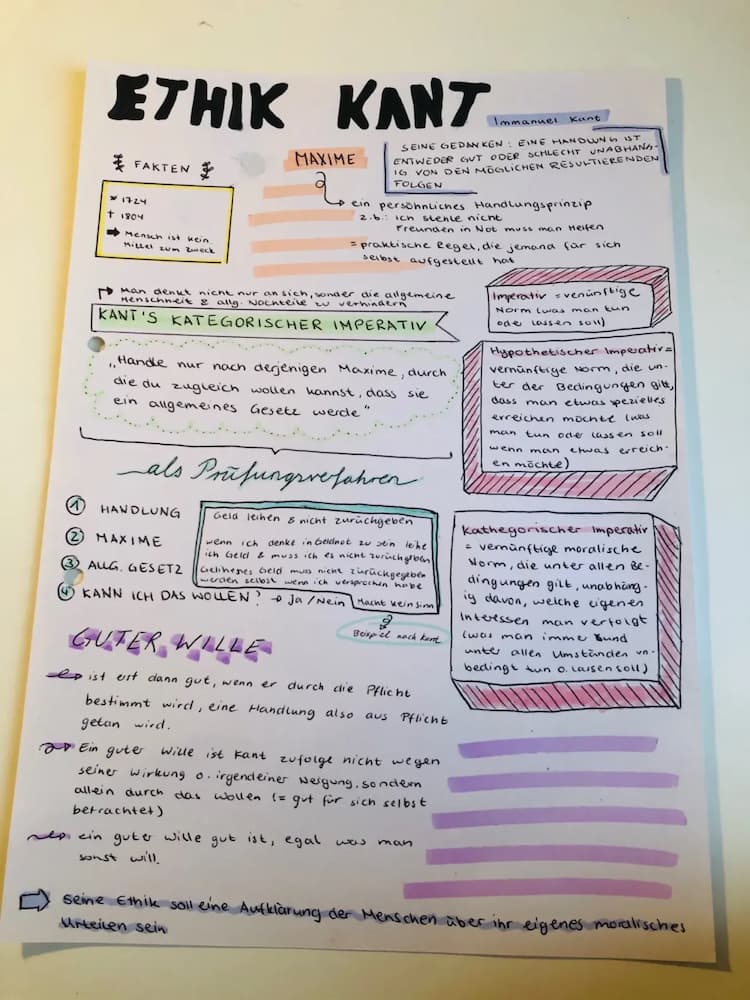 ETHIK KANT
Immanuel Kant
SEINE GEDANKEN: EINE HANDLUNG IST
ENTWEDER GUT ODER SCHLECHT UNABHÄNG-
IG VON DEN MÖGLICHEN RESULTIERENDEN
FOLGEN
FAKTEN
* 1724
† 1804
➡ Mensch ist kein
Mittel zum Zweck
MAXIME
ein persönliches Handlungsprinzip
z.b.: ich stehle nicht
Freunden in Not muss man helfen
= praktische Regel, die jemand für sich
selbst aufgestellt hat
Man denkt nicht nur an sich, sonder die allgemeine
Menschheit & allg. Nachteile zu verhindern
KANT'S KATEGORISCHER IMPERATIV
„Handle nur nach derjenigen Maxime, durch
die du zugleich wollen kannst, dass sie
ein allgemeines Gesetz werde"
Imperativ = vernünftige
Norm (was man tun
ode lassen soll)
Hypothetischer Imperativ =
vernünftige Norm, die un-
ter der Bedingungen gilt,
dass man etwas spezielles
erreichen möchte (was
man tun ode lassen soll
wenn man etwas erreich-
en möchte)
als Prüfungsverfahren
① HANDLUNG
② MAXIME
③ ALLG. GESETZ
④ KANN ICH DAS WOLLEN? → Ja / Nein
Geld leihen & nicht zurückgeben
wenn ich denke in Geldnot zu sein leihe
ich Geld & muss ich es nicht zurückgeben
Geliehenes Geld muss nicht zurückgegeben
werden selbst wenn ich versprochen habe
Macht kein sinn
Beispiel nach Kant
Kathegorischer Imperativ
= vernünftige moralische
Norm, die unter allen Be-
dingungen gilt, unabhäng-
ig davon, welche eigenen
Interessen man verfolgt
(was man imme und
unter allen Umständen un-
bedingt tun o. lassen soll)
GUTER WILLE
ist erst dann gut, wenn er durch die Pflicht
bestimmt wird, eine Handlung also aus Pflicht
getan wird.
Ein guter Wille ist Kant zufolge nicht wegen
seiner Wirkung o. irgendeiner Neigung, sondern
allein durch das Wollen (= gut für sich selbst
betrachtet)
ein guter Wille gut ist, egal was man
sonst will.
Seine Ethik soll eine Aufklärung der Menschen über ihr eigenes moralisches
Urteilen sein